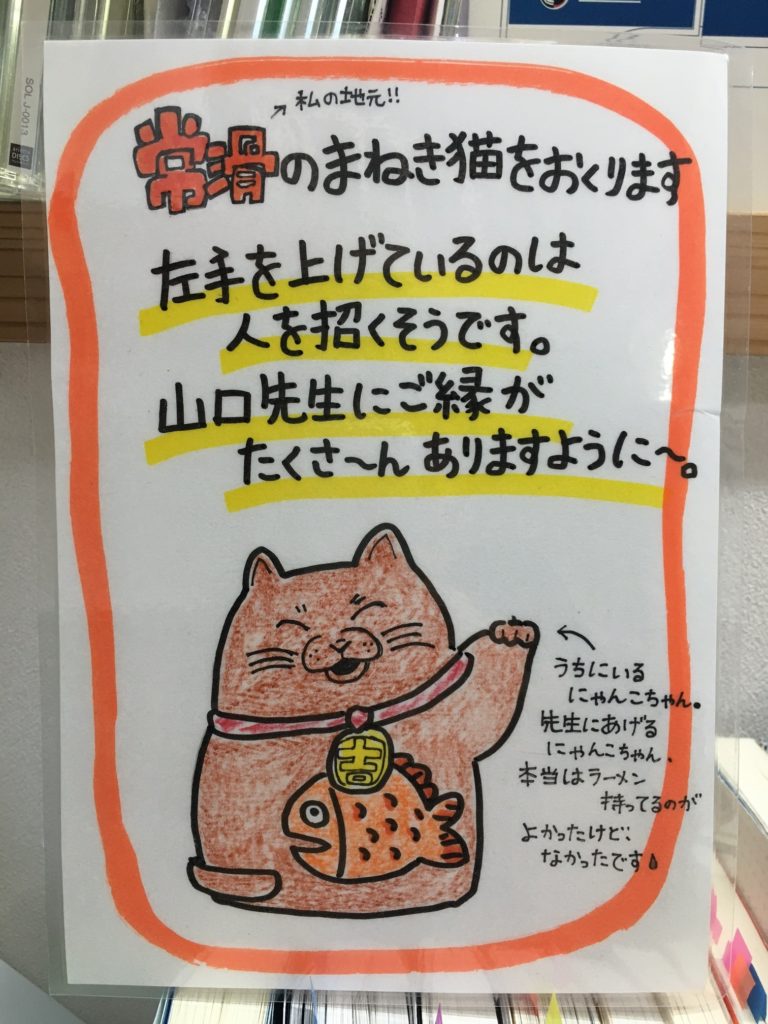 SOL J-0013
私の地元!!
常滑のまねき猫をおくります
左手を上げているのは
人を招くそうです。
山口先生にご縁が
たくさ〜んありますように〜。
うちにいる
にゃんこちゃん。
先生にあげる
にゃんこちゃん、
本当はラーメン
持ってるのが
よかったけど、
なかったです
吉